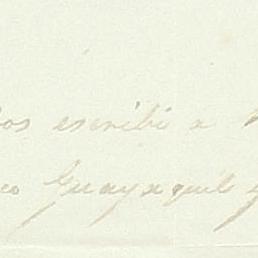 os escribi a
co Guayaquil y